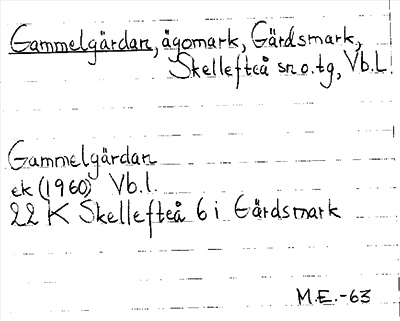 Gammelgärdan, ägomark, Gärdsmark,
Skellefteå sn o. tg, Vb.L.
Gammelgärdan
ek (1960) Vb.l.
22 K Skellefteå 6 i Gärdsmark
M.E.-63